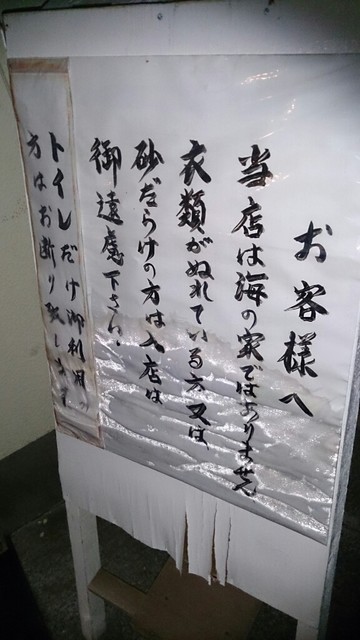 お客様へ
当店は海の家ではありません
衣類がぬれている方又は、
砂だらけの方は入店は
御遠慮下さい。
トイレだけ御利用の
方はお断り致します